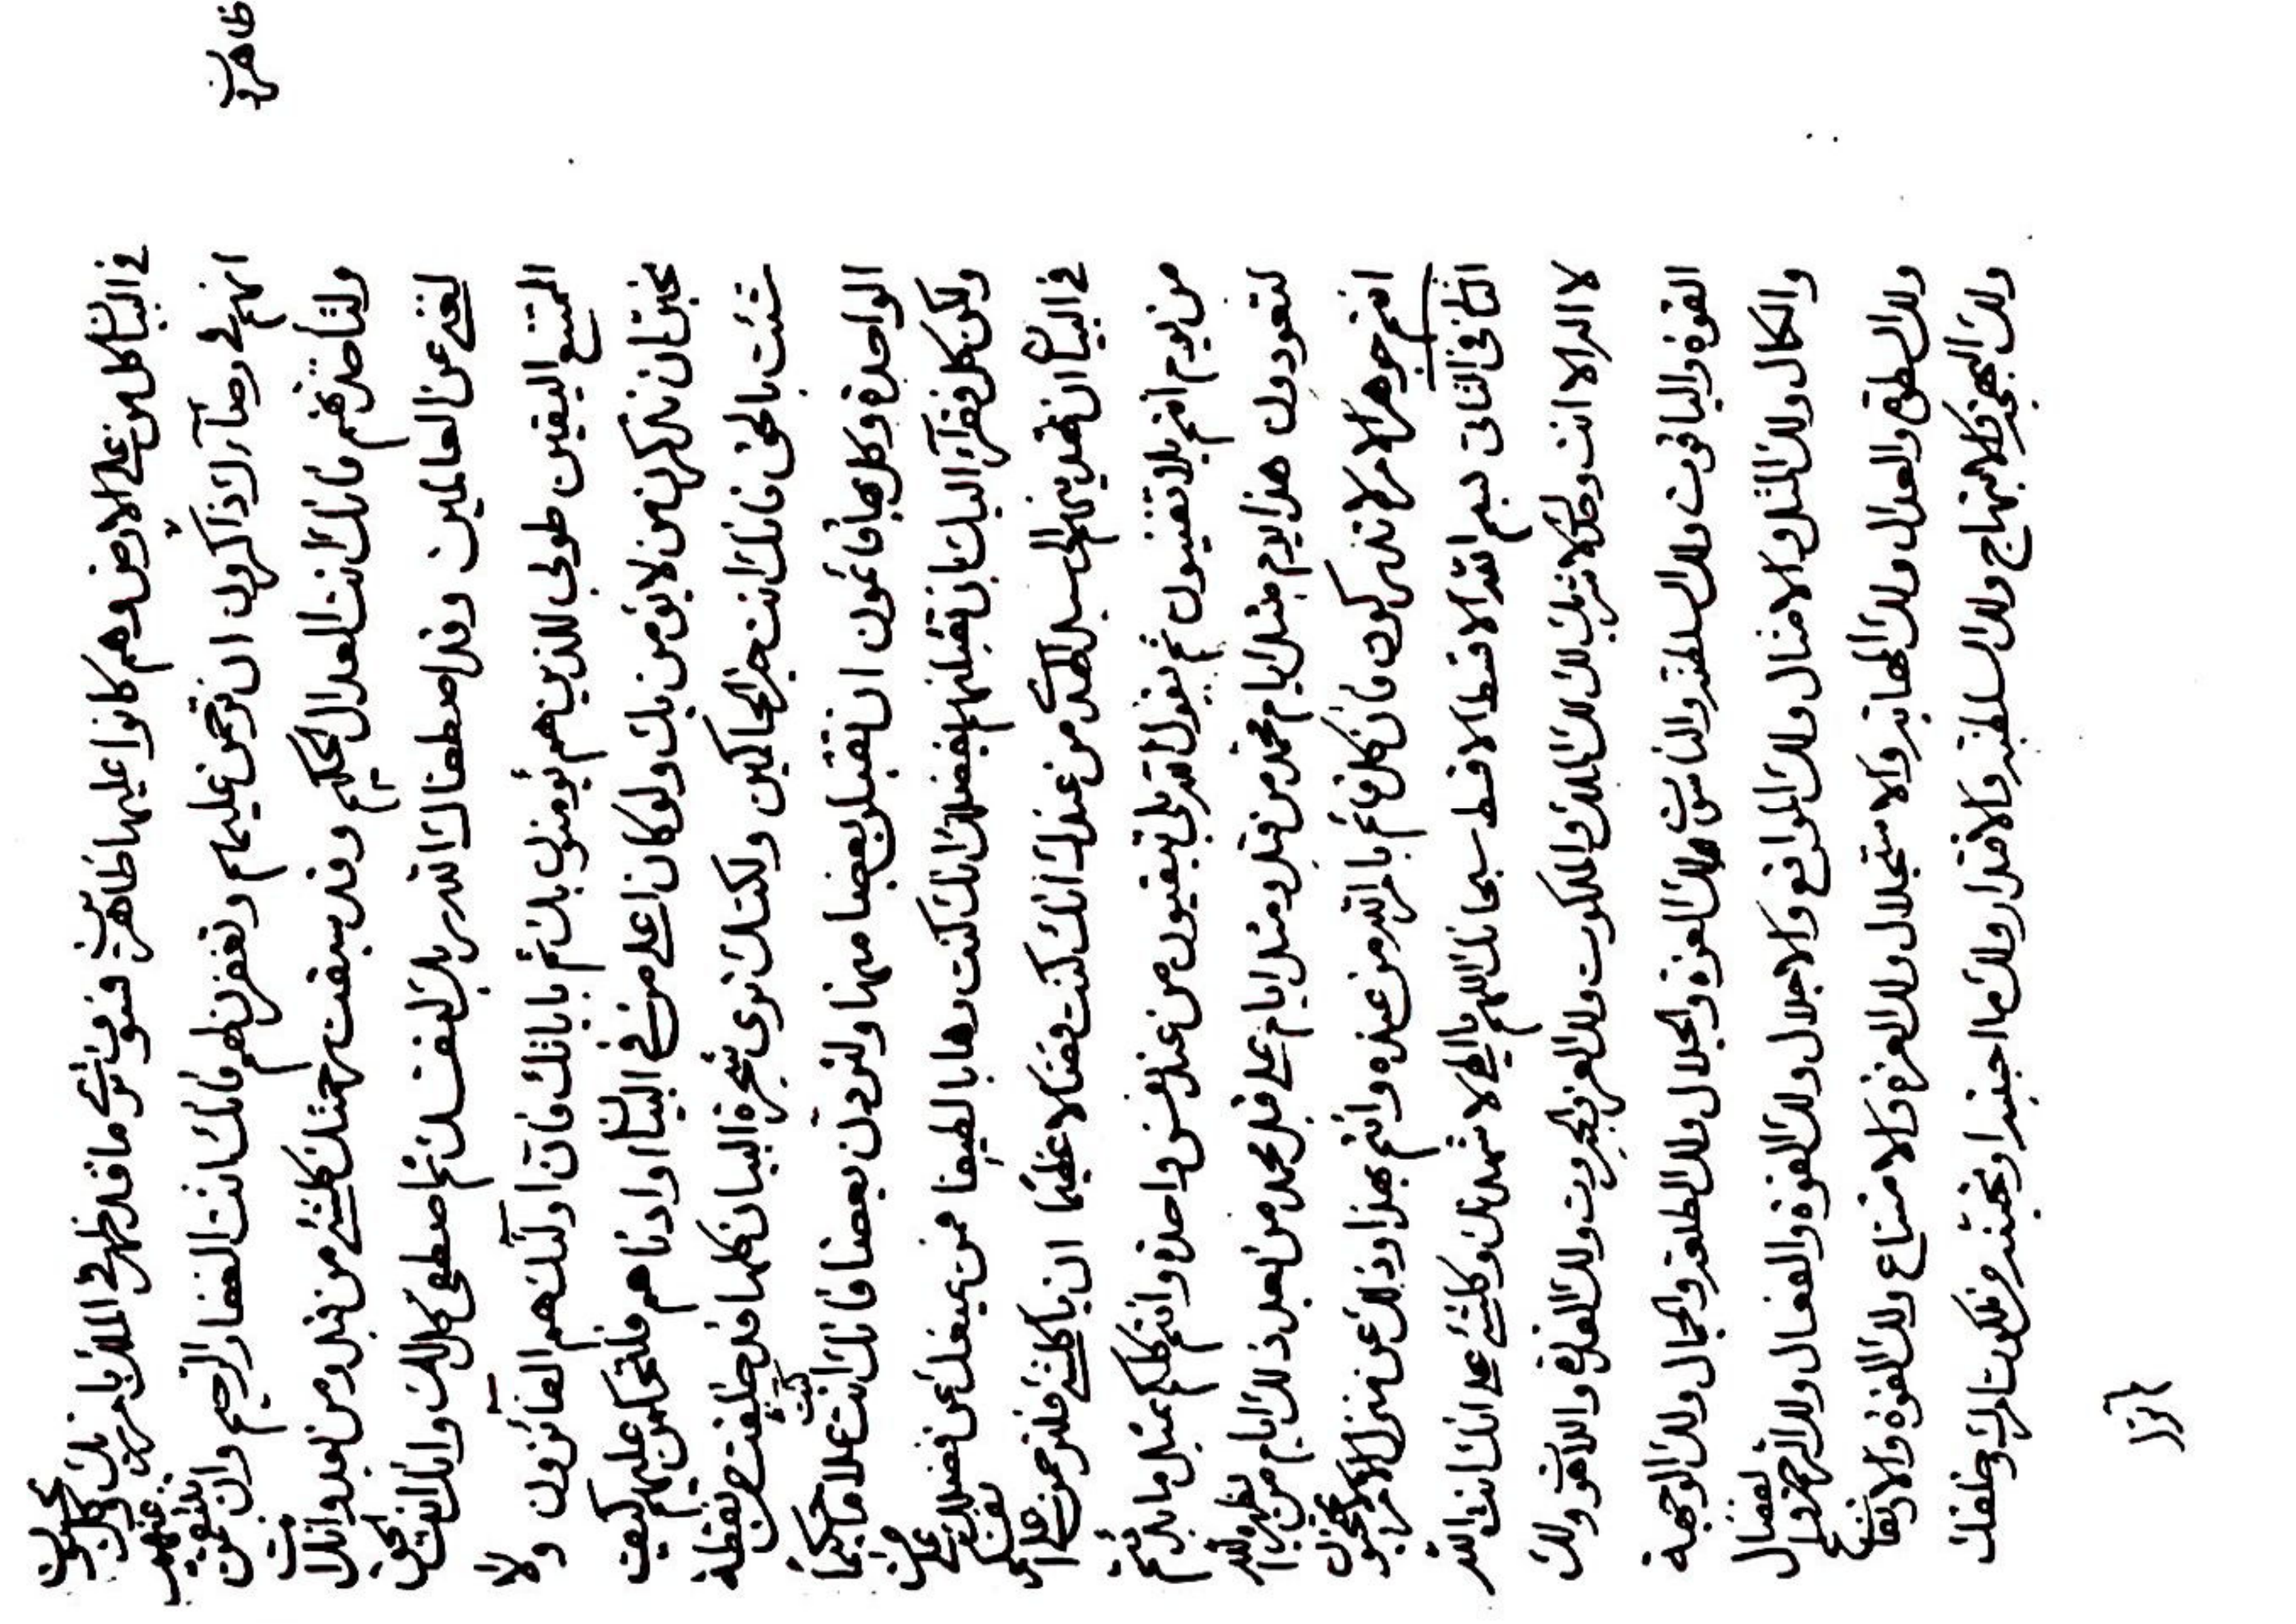 ظاهرة
في البيان كل من على الارض وهم كانوا عليها ظاهرة فسوف ترى ما قد ظهر في الملك بامر ربك وكل
انهم في رضآءك ذاكرون ان ترحمن عليهم وتغفرن لهم فانك انت الغفار الرحيم وان
ولتأخذنهم فانك انت العدال الحكيم وقد سبقت رحمتك كلشئ من قبل ومن بعد وانك انت
لغني عن العالمين وقد اصطفاك الله ربك لنفسك ثم اصطفى كل لك وانك انت
الممتنع اليقين طوبى للذين هم يؤمنون بك ثم باياتك فان اولئك هم الفائزون ولا
تحبن ان تذكرن من لا يؤمن بك ولو كان اعلى من في البيان او ادناهم فلتحكمن عليهم كيف
شئت بالحق فانك انت خير الحاكمين ولكنك ترى شجرة البيان كلها قد خلقت من نقطة
الواحدة وكل بها قائمون ان تقبلن بعضا منها ولتردن بعضا فانك انت كنت علاما حكيما
ولكن كل فقرآء اليك بان تقبلنهم بفضلك انك كنت وهابا لطيفا فمن يمنعك عن فضلك
في البيان ان تهدينهم الى سبل الهدى من عندك انك كنت فضالا عظيما ان يا كلشئ فلترحمن على
من يوم انتم بلا تقنيون ثم يقول الله بلى تبقيون من عند نفس واحدة وانتم كلكم بمثل ما بدئتم
لتعودون هذا يوم مثل ايام محمد من قبل ومثل ايام على قبل محمد من بعد ذلك ايام من يظهره الله
انتم جوهر الامر لا تدركون فان كل قائم بامر الله من عنده وانتم بهذا وذلك عن منزل الامر محتجبون
الثانى فى الثانى بسم الله الاقسط الاقسط سبحانك اللهم يا الهى لاشهدنك وكلشئ على انك انت الله
لا اله الا انت وحدك لا شريك لك لك الملك والملكوت ولك العز والجبروت ولك القدرة واللاهوت ولك
القوة والياقوت ولك السلطنة والناسوت ولك العزة والجلال ولك الطلعة والجمال ولك الوجهة
والكمال ولك المثل والامثال ولك المواقع والاجلال ولك القوة والفعال ولك الرحمة والفضال
ولك السطوة والعدال ولك المهابة والاستجلال ولك العزة والامتناع ولك القوة والارتفاع
ولك البهجة والابتهاج ولك السلطنة والاقتدار ولك ما احببته او تحببنه من ملكوت امرك وخلقك